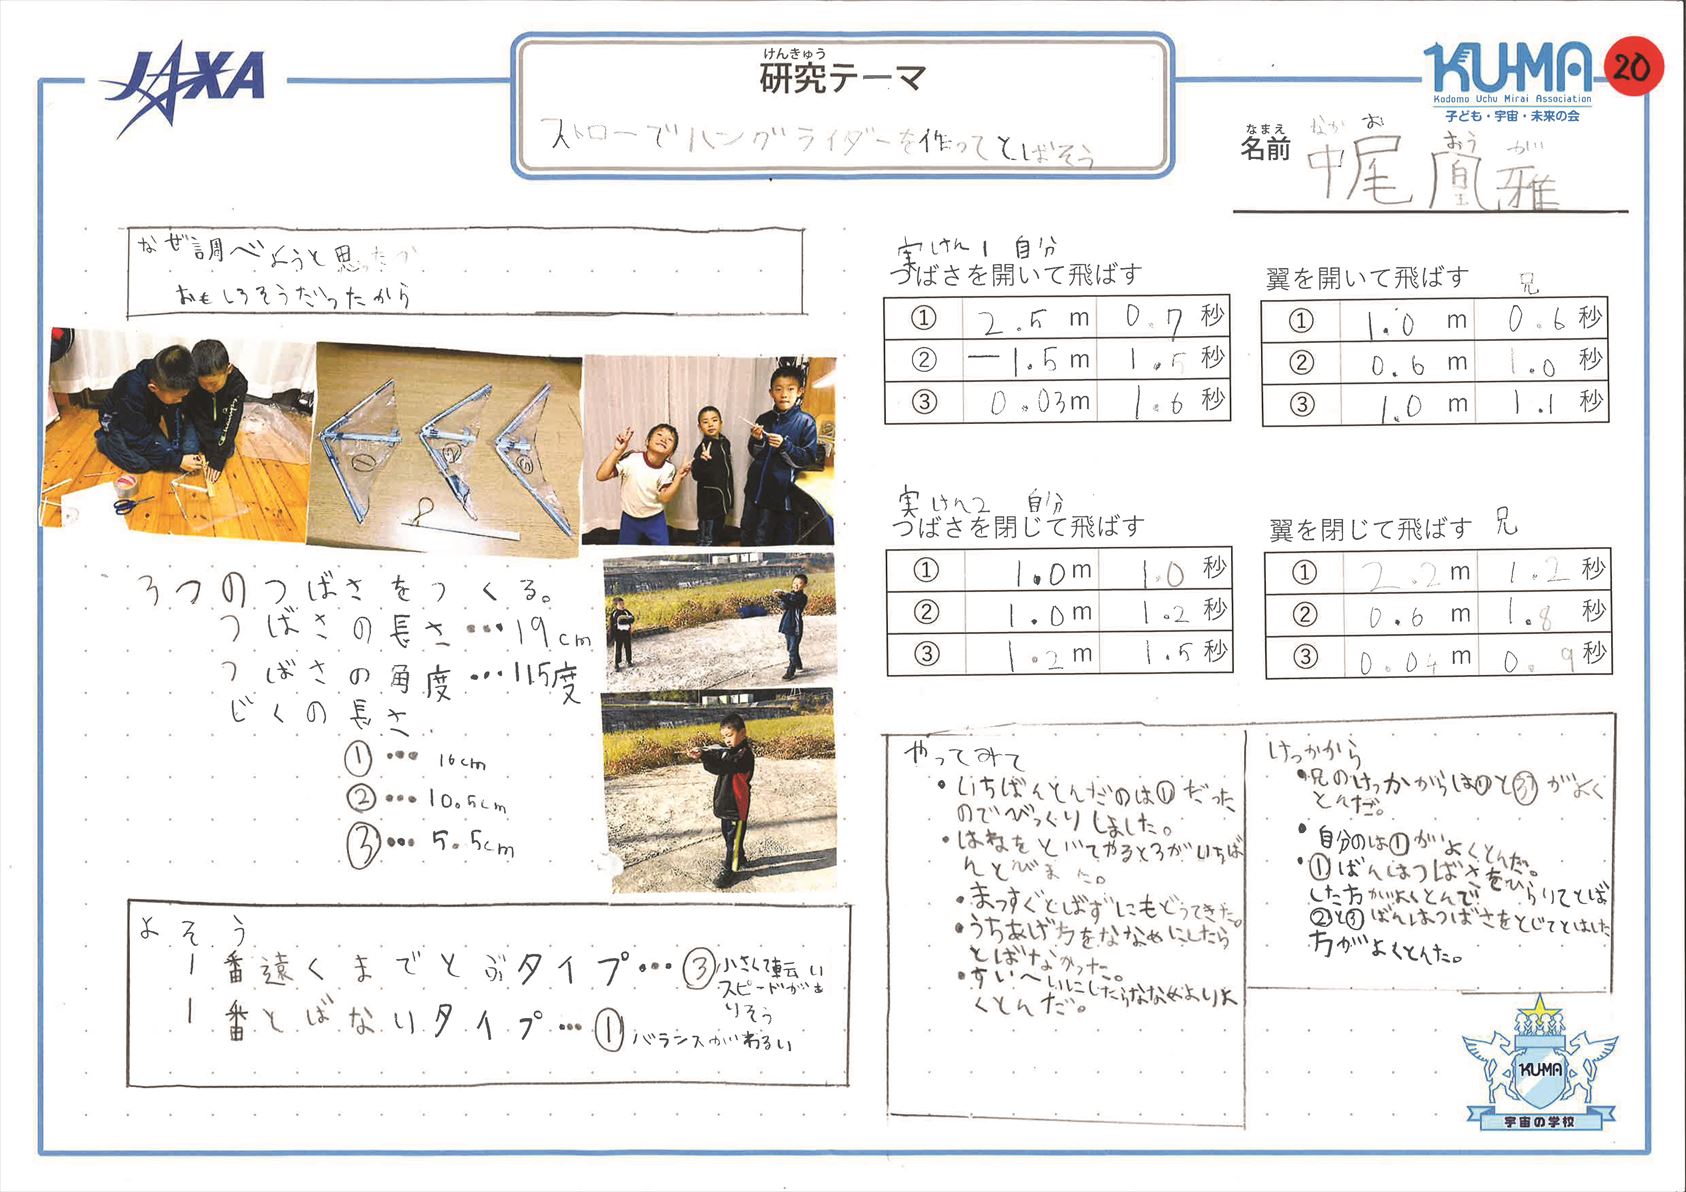 JAXA
けんきゅう
研究テーマ
ストローでハングライダーを作ってとばそう
KU-MA
Kodomo Uchu Mirai Association
子ども・宇宙・未来の会
20
なまえ
名前
なか お おう が
中尾 凰雅
なぜ調べようと思ったか
おもしろそうだったから
① ② ③
3つのつばさをつくる。
つばさの長さ…19cm
つばさの角度…115度
じくの長さ
①… 16cm
②…10.5cm
③… 5.5cm
よそう
1番遠くまでとぶタイプ…③小さくて転い
スピードがあ
りそう
1番とばないタイプ…①バランスがわるい
実けん1 自分
つばさを開いて飛ばす
① 2.5m 0.7秒
② −1.5m 1.5秒
③ 0.03m 1.6秒
翼を開いて飛ばす 兄
① 1.0m 0.6秒
② 0.6m 1.0秒
③ 1.0m 1.1秒
実けん2 自分
つばさを閉じて飛ばす
① 1.0m 1.0秒
② 1.0m 1.2秒
③ 1.2m 1.5秒
翼を閉じて飛ばす 兄
① 2.2m 1.2秒
② 0.6m 1.8秒
③ 0.04m 0.9秒
やってみて
・いちばんとんだのは①だった
のでびっくりしました。
・はねをとじてやるとろがいちば
んとびました。
・まっすぐとばずにもどってきた。
・うちあげ方をななめにしたら
とばなかった。
・すい〜いにしたらななめよりよ
くとんだ。
けっかから
・兄のけっかからは①と③がよく
とんだ。
・自分のは①がよくとんだ。
・①ばんはつばさをひらいてとば
した方がよくとんで
②と③ばんはつばさをとじてとばした
方がよくとんだ。
KU-MA
宇宙の学校